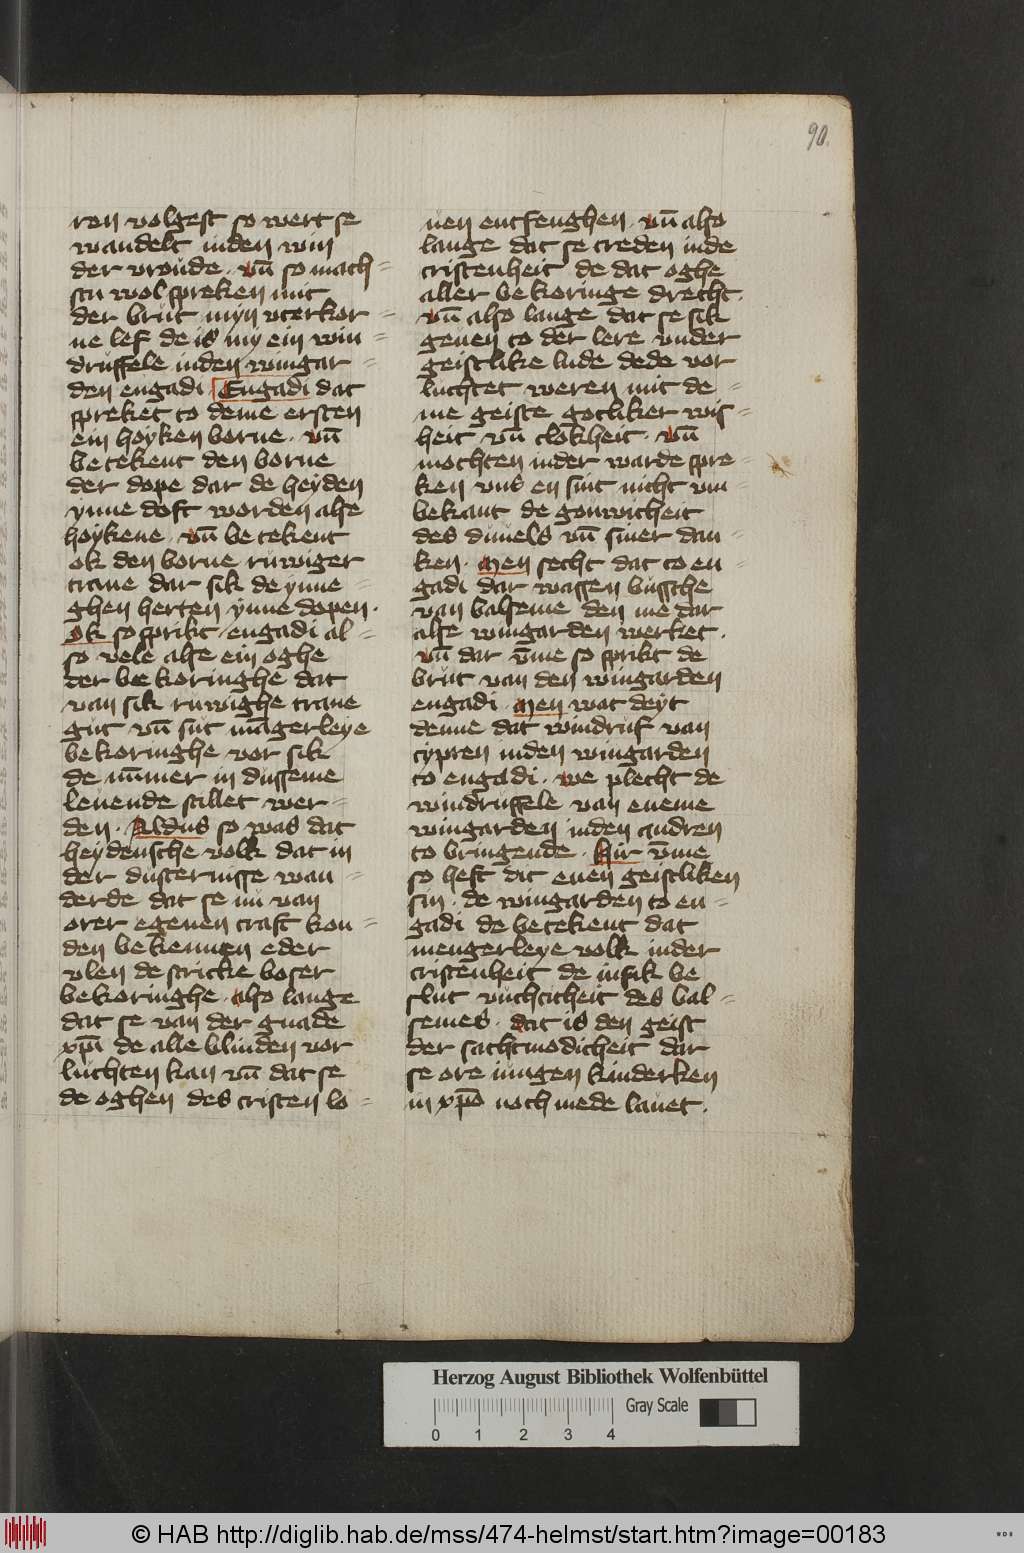 90.
ren volgest so wert se
wandelt inden win
der vroude · vn̄ so mach=
stu wol spreken mit
der brut myn vterkor=
ne lef de is my ein win=
druffele inden wingar=
den engadi · Engadi dat
spreket to deme ersten
ein hoyken borne · vn̄
betekent den borne
der dope dar de heyden
ynne doft worden alse
hoykene · vn̄ betekent
ok den borne ruwiger
trane dar sik de ynne=
ghen herten ynne dopen ·
ok so sprikt engadi al=
so vele alse ein oghe
der bekoringhe dat
van sik ruwighe trane
gut vn̄ sut mā̄gerleye
bekoringhe vor sik
de nūmer in dusseme
leuende stillet wer=
den · Aldus so was dat
heydensche volk dat in
der dusternisse wan=
derde dat se nu van
orer egenen craft kon=
den bekennen eder
vlen de stricke boser
bekoringhe · also lange
dat se van der gnade
xp̄i de alle blinden vor
luchten kan vn̄ dat se
de oghen des cristen lo=
uen entfenghen · vn̄ also
lange dat se treden inde
cristenheit de dat oghe
aller bekoringe drecht ·
vn̄ also lange dat se sik
geuen to der lere vnder
geistlike lude dede vor
luchtet weren mit de=
me geiste gotliker wis=
heit vn̄ clokheit · vn̄
mochten inder warde spre=
ken vns en sint nicht vn=
bekant de gonwicheit
des duuels vn̄ siner dan=
ken · Men secht dat to en=
gadi dar wassen bussche
van balseme den me dar
alse wingarden werket ·
vn̄ dar v̄me so sprikt de
brut van den wingarden
engadi · Men wat deyt
denne dat windruf van
cypren inden wingarden
to engadi · we plecht de
windruffele van eneme
wingarden inden andren
to bringende · Hir v̄me
so heft dit enen geistliken
sin · de wingarden to en=
gadi de betekent dat
mengerleye volk inder
cristenheit de in sik be
slut vuchticheit des bal=
semes · dat is den geist
der sachtmodicheit dar
se ore iungen kinderken
in xp̄o noch mede lauet ·
Herzog August Bibliothek Wolfenbüttel
Gray Scale
0 1 2 3 4
© HAB http://diglib.hab.de/mss/474-helmst/start.htm?image=00183